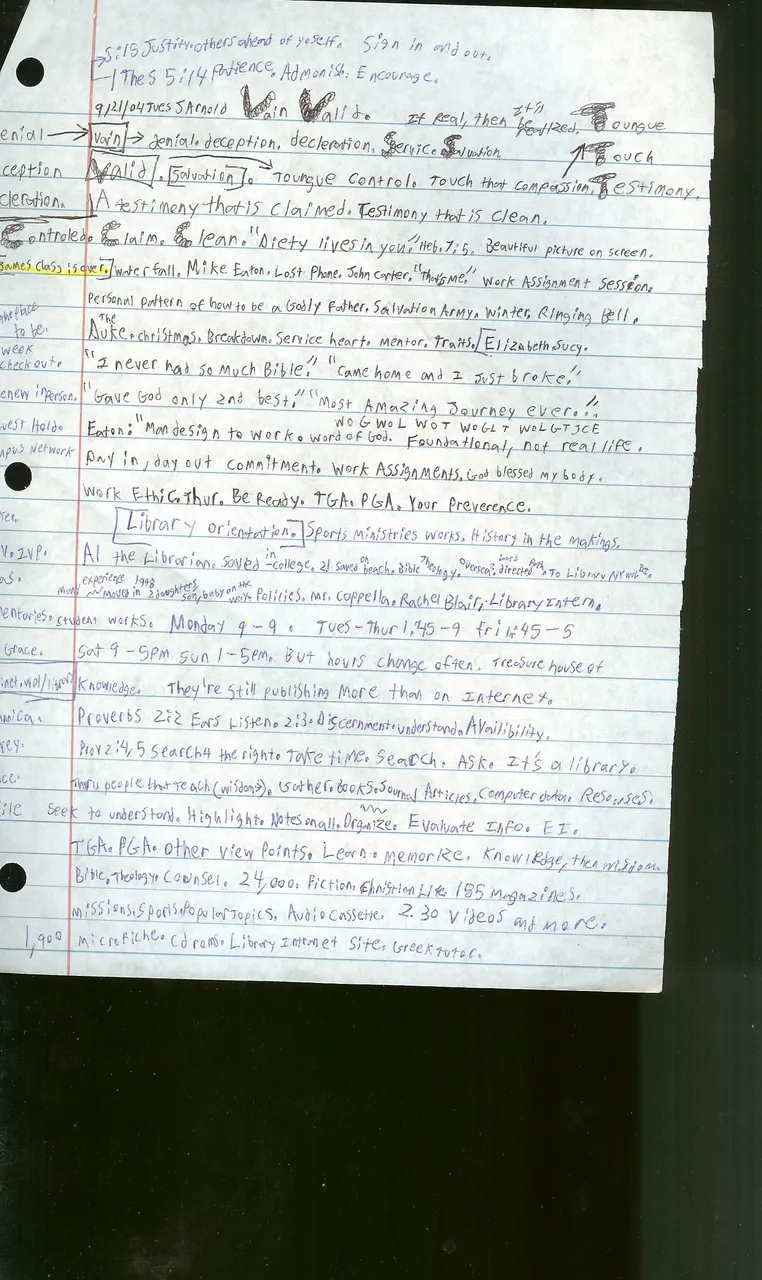 5:15 Justify. others ahead of yoself. Sign in and out.
1 Thes 5:14 Patience. Admonish. Encourage.
9/21/04 Tues J Arnold Vain Valid. If Real, then it'll be realized. Toungue
enial → Vain → denial. deception. decleration. Service Salvation Touch
ception Valid. Salvation. Toungue control. Touch that compassion. Testimony.
cleration. A testimony that is claimed. Testimony that is clean.
Controled. Claim. Clean. "Diety lives in you." Heb. 7:5. Beautiful picture on screen.
James class is over. Water fall. Mike Eaton. Lost Phone. John Carter. "That's me." Work Assignment Session.
Personal pattern of how to be a Godly Father. Salvation Army. Winter. Ringing Bell.
the place
to be. The Duke. Christmas. Breakdown. Service heart. mentor. Traits. Elizabeth Sucy.
week
check out. "I never had so Much Bible." "Came home and I Just broke."
enew inperson. "Gave God only 2nd best." "Most Amazing Journey ever..."
WOG WOL WOT WOGLT WOLGTJCE
west Hold. Eaton: "Man design to work. word of God. Foundational, not real life.
mpus Network Day in, day out commitment. Work Assignments. God blessed my body.
Work Ethic. Thur. Be Ready. TGA. PGA. Your Preverence.
Library orientation. Sports Ministries works. History in the makings.
V. IVP. Al the Librarian. Saved in college. 21 saved on beach. Bible Theology. overseas. Lord directed path. To Library
experience 1998
moved in 2 daughters, son, baby on the way. Policies. Mr. Coppella. Rachel Blair, Library Intern.
mentaries. student works. Monday 9-9. Tues-Thur 1:45-9 fri :45-5
Grace. Sat 9-5pm Sun 1-5pm. But hours change often. Treasure house of
inet.wol/library Knowledge. They're still publishing More than on Internet.
nnica. Proverbs 2:2 Ears Listen. 2:3. Discernment. understand. Availibility.
Prov 2:4,5 Search 4 the right. Take time. Search. Ask. It's a library.
Thru people that teach (wisdom). Gather. Books. Journal Articles. Computer data. Resourses.
ile Seek to understand. Highlight. Notes on all. Organize. Evaluate Info. EI.
TGA. PGA. other view Points. Learn. Memorize. Knowledge, then wisdom.
Bible. Theology. Counsel. 24,000. Fiction. Christian Life. 185 Magazines.
missions. sports. Popular Topics. Audio Cassette. 2.30 Videos and more.
1,900 microfiche. Cd roms. Library Intranet site. Greek tutor.